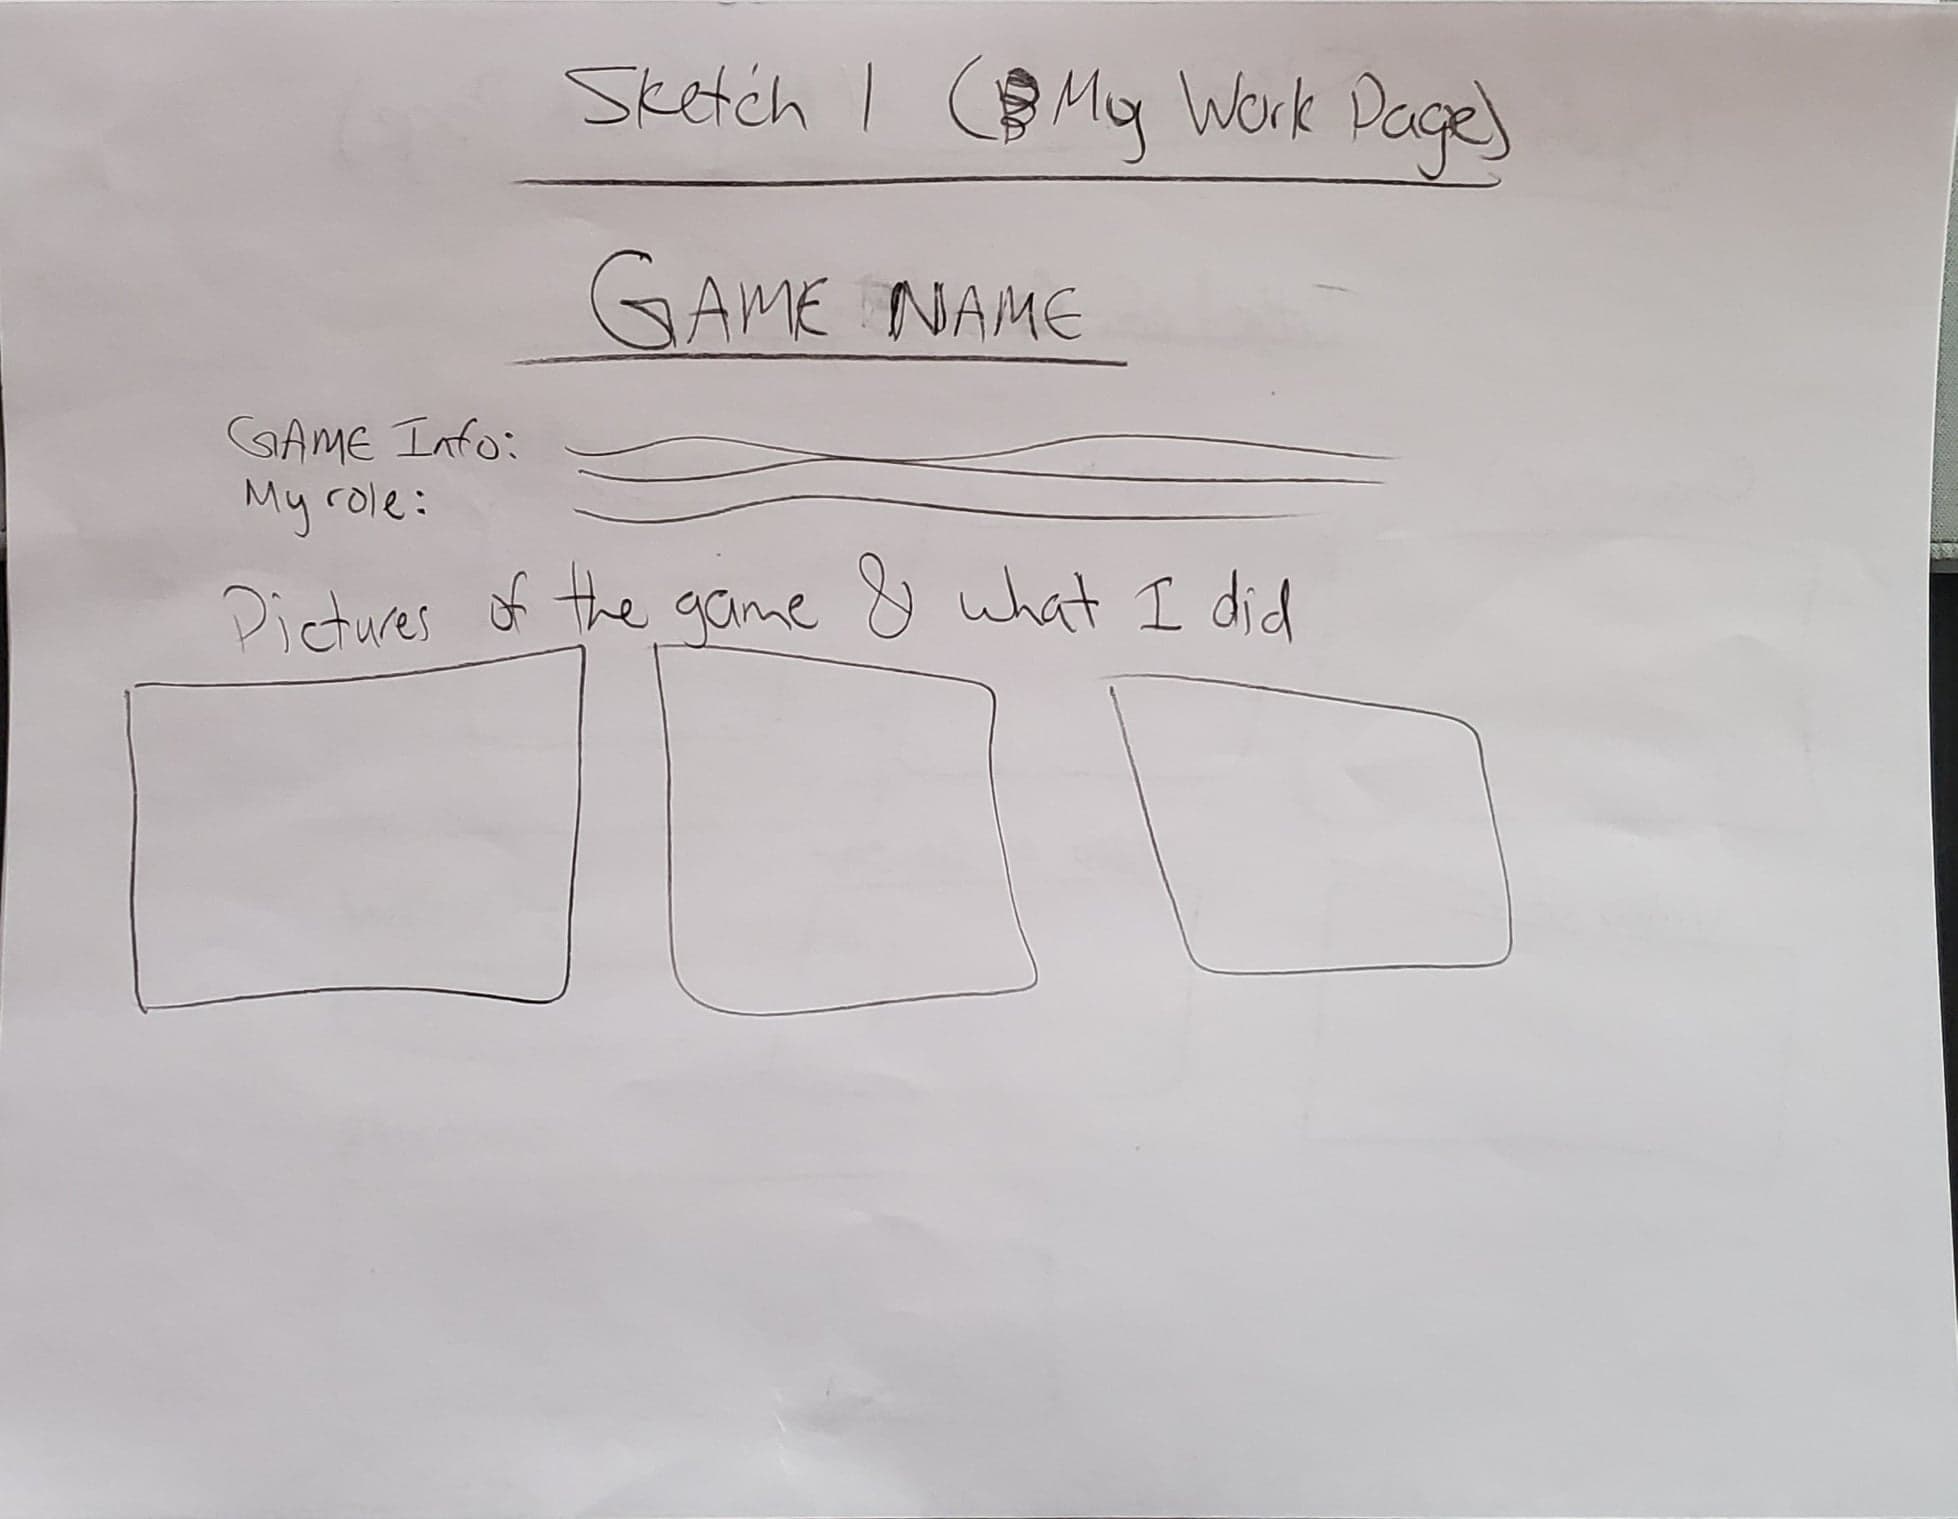 Sketch 1 (My Work Page)
GAME NAME
GAME Info:
My role:
Pictures of the game & what I did